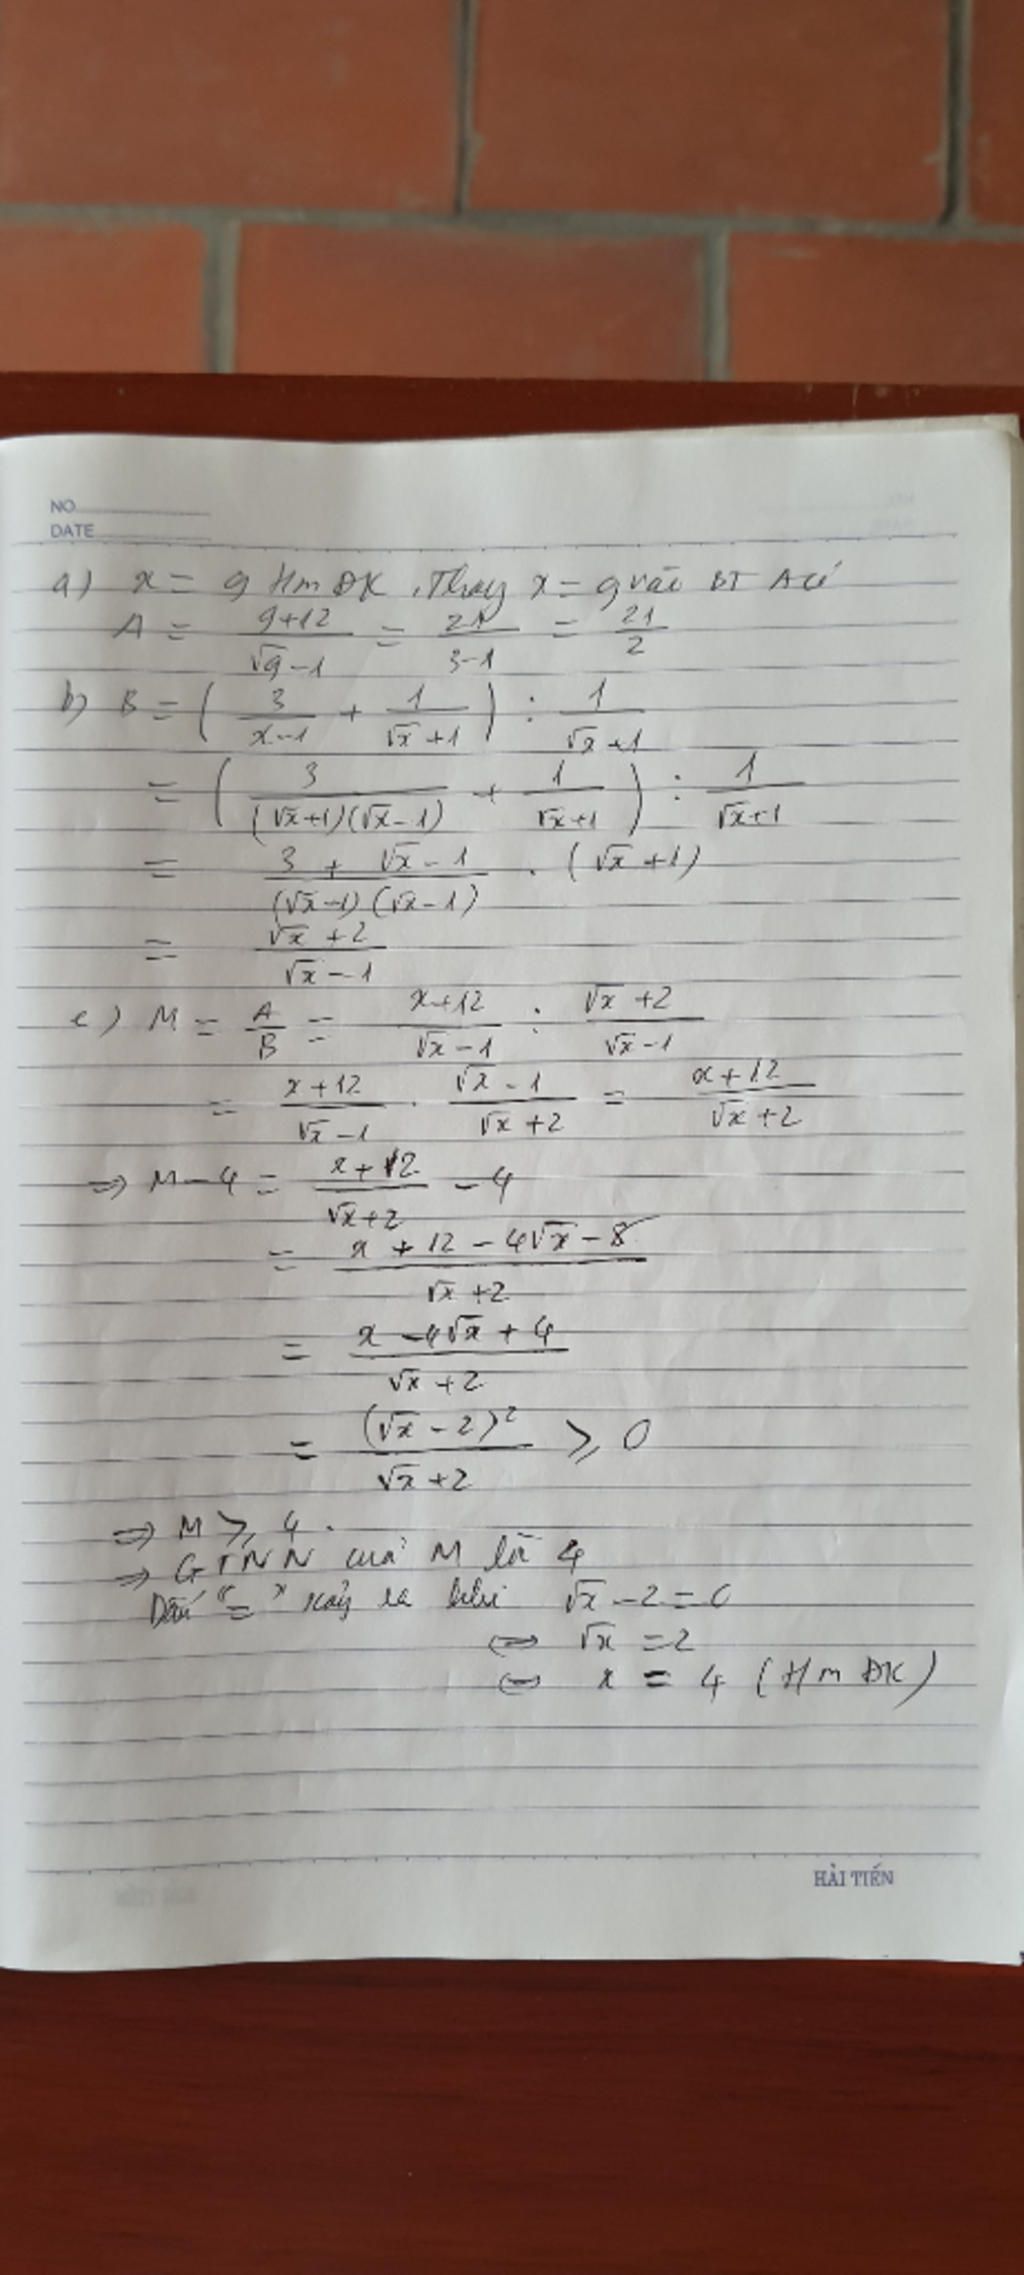 NO
DATE
a) x = 9 tmĐK. Thay x = 9 vào BT A có
A = \frac{9+12}{\sqrt{9}-1} = \frac{21}{3-1} = \frac{21}{2}
b) B = ( \frac{3}{x-1} + \frac{1}{\sqrt{x}+1} ) : \frac{1}{\sqrt{x}+1}
= ( \frac{3}{(\sqrt{x}+1)(\sqrt{x}-1)} + \frac{1}{\sqrt{x}+1} ) : \frac{1}{\sqrt{x}+1}
= \frac{3+\sqrt{x}-1}{(\sqrt{x}-1)(\sqrt{x}-1)} . (\sqrt{x}+1)
= \frac{\sqrt{x}+2}{\sqrt{x}-1}
c) M = \frac{A}{B} = \frac{x+12}{\sqrt{x}-1} : \frac{\sqrt{x}+2}{\sqrt{x}-1}
= \frac{x+12}{\sqrt{x}-1} . \frac{\sqrt{x}-1}{\sqrt{x}+2} = \frac{x+12}{\sqrt{x}+2}
⇒ M - 4 = \frac{x+12}{\sqrt{x}+2} - 4
= \frac{x+12-4\sqrt{x}-8}{\sqrt{x}+2}
= \frac{x-4\sqrt{x}+4}{\sqrt{x}+2}
= \frac{(\sqrt{x}-2)^2}{\sqrt{x}+2} ⩾ 0
⇒ M ⩾ 4.
⇒ GTNN của M là 4
Dấu "=" xảy ra khi \sqrt{x} - 2 = 0
⇔ \sqrt{x} = 2
⇔ x = 4 (tmĐK)
HẢI TIẾN